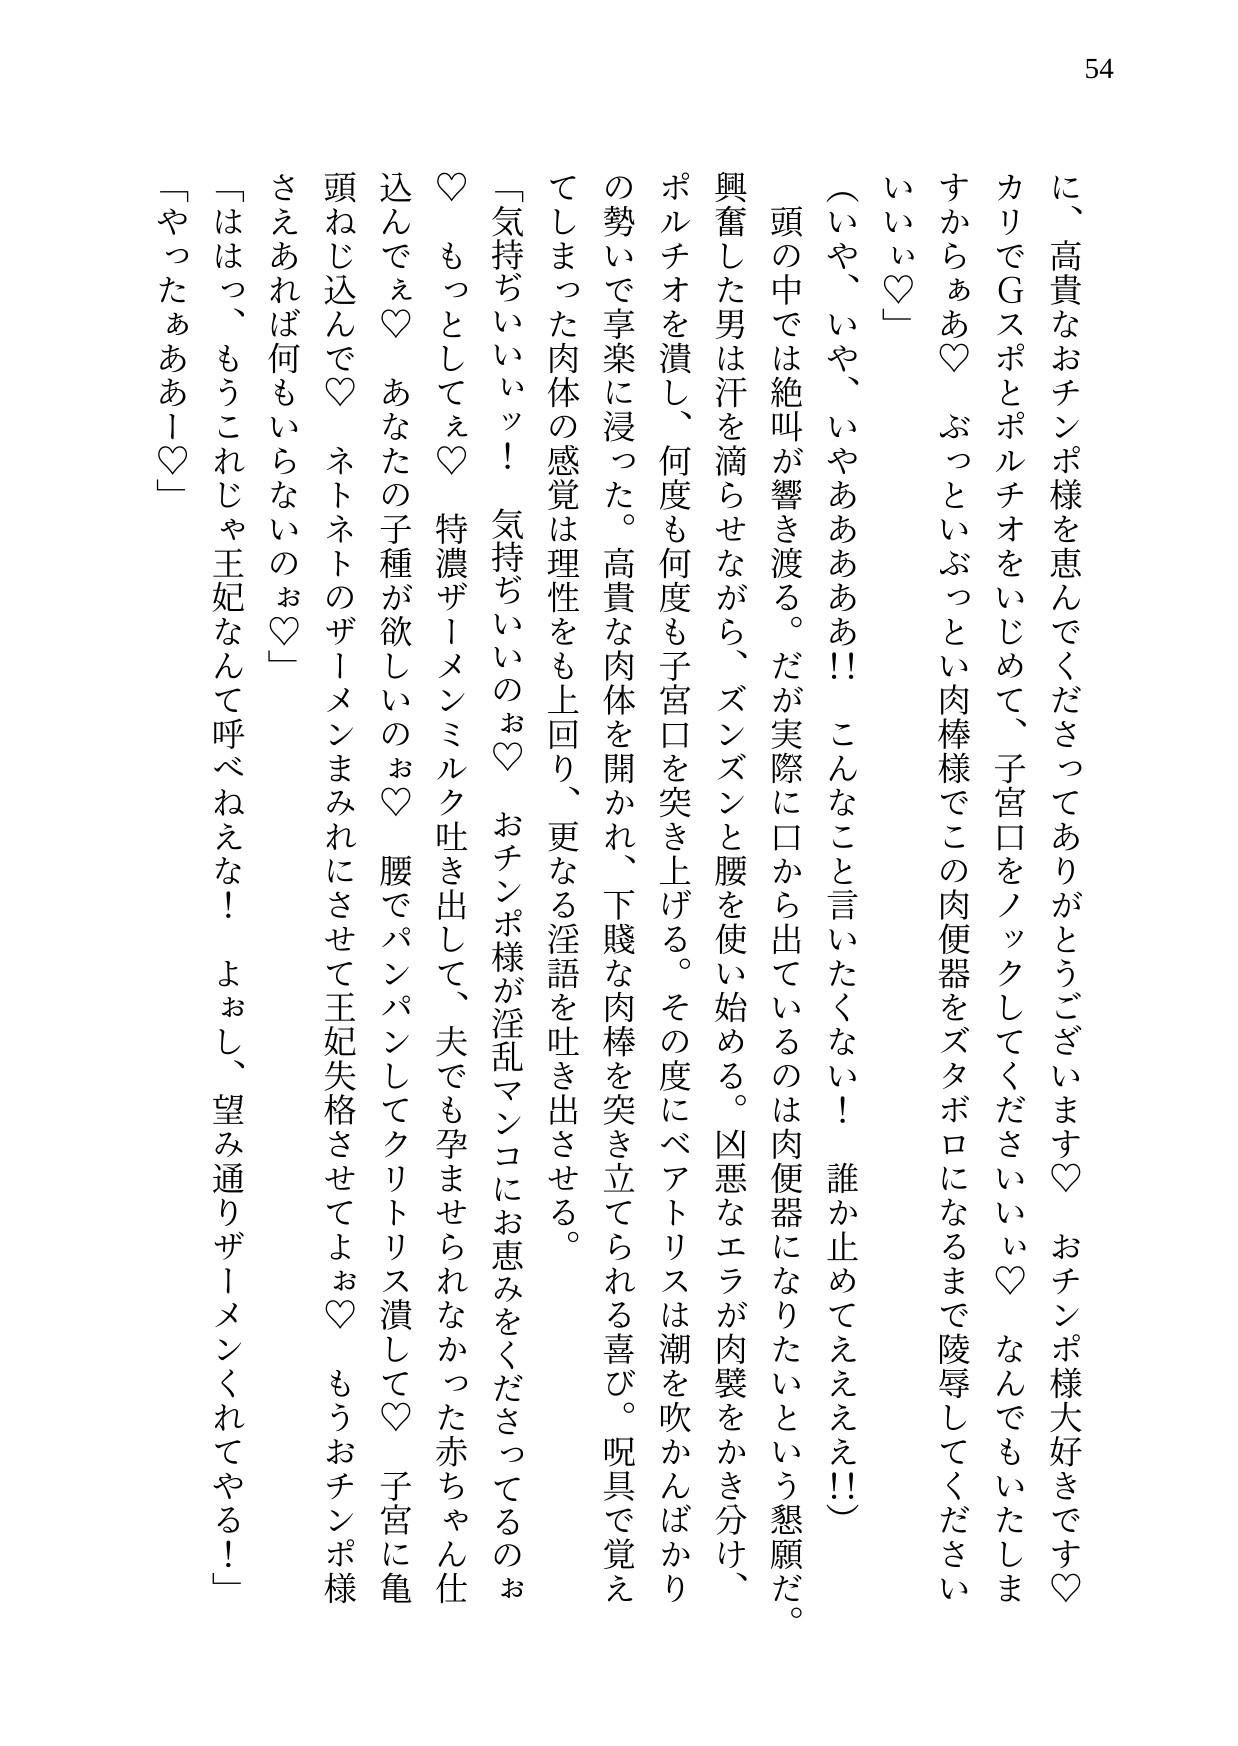 54
に、高貴なおチンポ様を恵んでくださってありがとうございます♡　おチンポ様大好きです♡
カリでＧスポとポルチオをいじめて、子宮口をノックしてくださいいいぃ♡　なんでもいたしま
すからぁあ♡　ぶっといぶっとい肉棒様でこの肉便器をズタボロになるまで陵辱してください
いいぃ♡」
（いや、いや、いやああああああ!!　こんなこと言いたくない！　誰か止めてえええええ!!）
　頭の中では絶叫が響き渡る。だが実際に口から出ているのは肉便器になりたいという懇願だ。
興奮した男は汗を滴らせながら、ズンズンと腰を使い始める。凶悪なエラが肉襞をかき分け、
ポルチオを潰し、何度も何度も子宮口を突き上げる。その度にベアトリスは潮を吹かんばかり
の勢いで享楽に浸った。高貴な肉体を開かれ、下賤な肉棒を突き立てられる喜び。呪具で覚え
てしまった肉体の感覚は理性をも上回り、更なる淫語を吐き出させる。
「気持ぢいいぃッ！　気持ぢいいのぉ♡　おチンポ様が淫乱マンコにお恵みをくださってるのぉ
♡　もっとしてぇ♡　特濃ザーメンミルク吐き出して、夫でも孕ませられなかった赤ちゃん仕
込んでぇ♡　あなたの子種が欲しいのぉ♡　腰でパンパンしてクリトリス潰して♡　子宮に亀
頭ねじ込んで♡　ネトネトのザーメンまみれにさせて王妃失格させてよぉ♡　もうおチンポ様
さえあれば何もいらないのぉ♡」
「ははっ、もうこれじゃ王妃なんて呼べねえな！　よぉし、望み通りザーメンくれてやる！」
「やったぁああー♡」